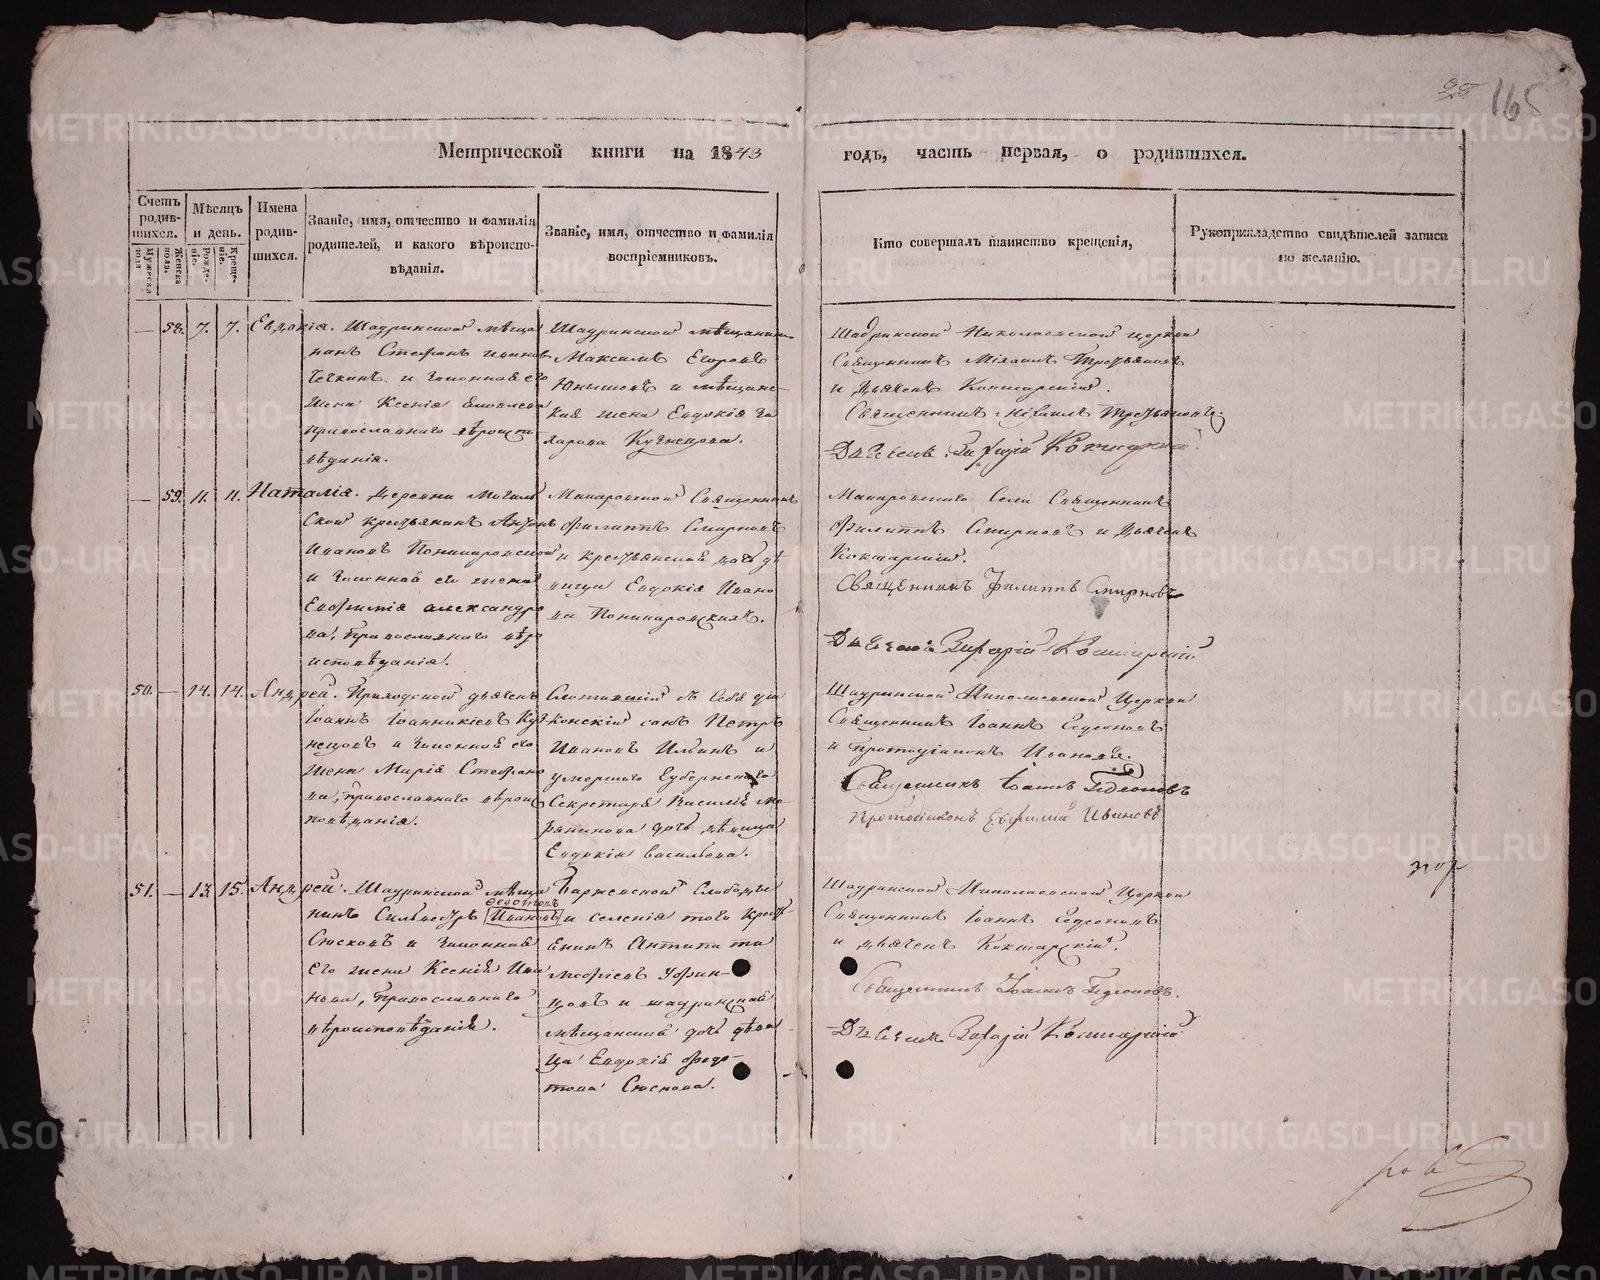 165
Метрической книги на 1843 годъ, часть первая, о родившихся.
Счетъ родив-шихся.
Мужеска пола.
Женска пола.
Мѣсяцъ и день.
Рожде-ніе.
Креще-ніе.
Имена родив-шихся.
Званіе, имя, отчество и фамилія
родителей, и какого вѣроиспо-
вѣданія.
Званіе, имя, отчество и фамилія
воспріемниковъ.
Кто совершалъ таинство крещенія,
Рукоприкладство свидѣтелей записи
по желанію.
— 58. 7. 7. Евдокія.
Шадринской мѣща
нинъ Стефанъ Ивановъ
и законная его
жена Ксенія Яковлева
православнаго вѣроиспо
вѣданія.
Шадринской мѣщанинъ
Максимъ Егоровъ
и мѣщанс-
кая жена Евдокія За
харова Кузнецова.
Шадринской Николаевской церкви
Священникъ Михаилъ Третьяковъ
и Дьячекъ Кокшарскій.
Священникъ Михаилъ Третьяковъ.
Дьячекъ Кокшарскій
— 59. 11. 11. Наталія.
Деревни Мыльни
ской крестьянинъ Антонъ
Ивановъ Пономаровской
и законная его жена
Евфимія Александро
ва, православнаго вѣро
исповѣданія.
Макаровской Священникъ
Филиппъ Смирновъ
и крестьянская дочь дѣ
вица Евдокія Ивано
ва Пономаровская.
Макаровскаго Села Священникъ
Филиппъ Смирновъ и Дьячекъ
Кокшарскій.
Священникъ Филиппъ Смирновъ
Дьячекъ Кокшарскій
50. — 14. 14. Андрей.
Приходской дьячекъ
Іоаннъ Іоанникіевъ Куз
нецовъ и законная его
жена Марія Стефано
ва, православнаго вѣроис
повѣданія.
Сложившій съ себя діа
конскій санъ Петръ
Ивановъ Ильинъ и
умершаго Губернскаго
Секретаря Василія
дочь дѣвица
Евдокія Васильева.
Шадринской Николаевской Церкви
Священникъ Іоаннъ Гедеоновъ
и протодіаконъ Ивановъ.
Священникъ Іоаннъ Гедеоновъ
Протодіаконъ Евфимій Ивановъ
51. — 13. 15. Андрей.
Шадринской мѣща
нинъ Сильвестръ Ивановъ
Федотовъ
Сюсковъ и законная
его жена Ксенія Ива
нова, православнаго
вѣроисповѣданія.
Барневской Слободы
и селенія того крест
янинъ Антипа Ти
мофѣевъ Уфин-
цовъ и шадринская
мѣщанская дочь дѣви
ца Евдокія Федо-
това Сюскова.
Шадринской Николаевской Церкви
Священникъ Іоаннъ Гедеоновъ
и дьячекъ Кокшарскій.
Священникъ Іоаннъ Гедеоновъ.
Дьячекъ Кокшарскій
METRIKI.GASO-URAL.RU